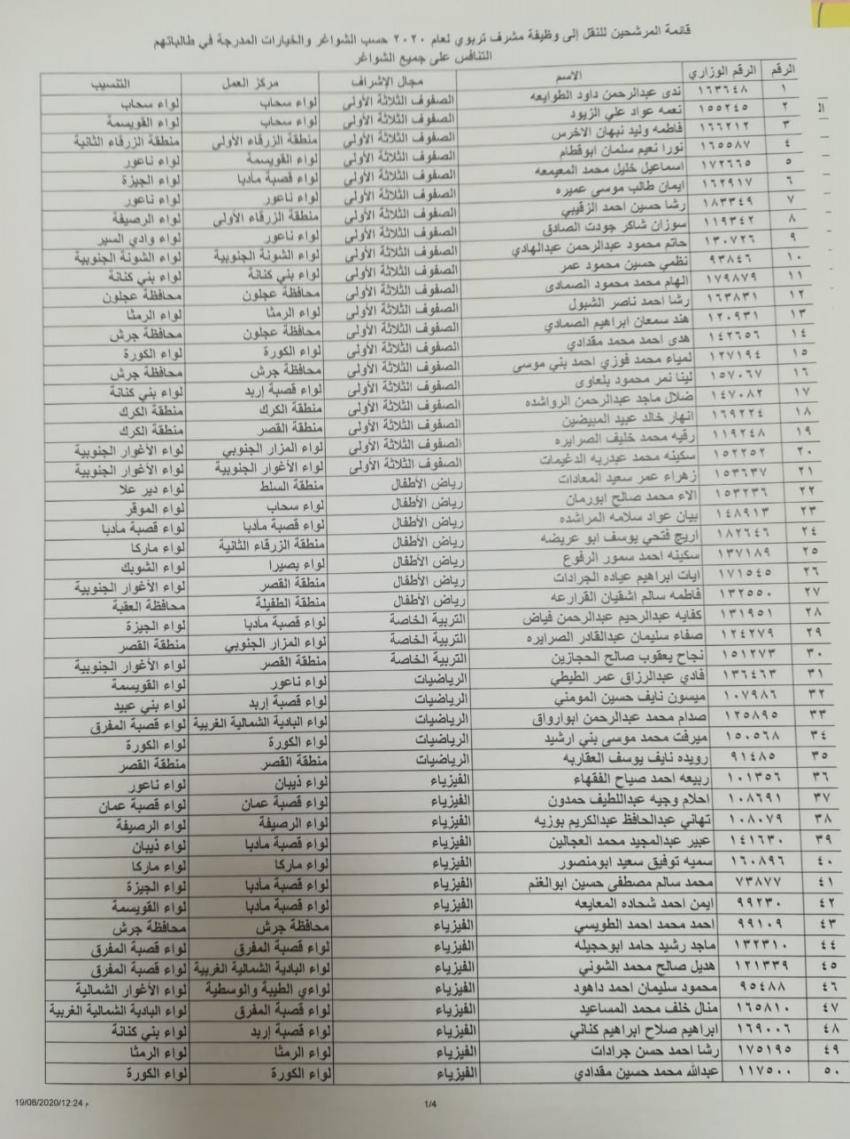 قائمة المرشحين للنقل إلى وظيفة مشرف تربوي لعام ٢٠٢٠ حسب الشواغر والخيارات المدرجة في طلباتهم
التنافس على جميع الشواغر
الرقم الرقم الوزاري الاسم مجال الإشراف مركز العمل التنسيب
١ ١٦٣٦٤٨ ندى عبدالرحمن داود الطوايعه الصفوف الثلاثة الأولى لواء سحاب لواء سحاب
٢ ١٥٥٢٤٥ نعمه عواد علي الزيود الصفوف الثلاثة الأولى لواء سحاب لواء القويسمة
٣ ١٦٦٢١٢ فاطمه وليد نبهان الاخرس الصفوف الثلاثة الأولى منطقة الزرقاء الأولى منطقة الزرقاء الثانية
٤ ١٦٥٥٨٧ نورا نعيم سلمان ابوقطام الصفوف الثلاثة الأولى لواء القويسمة لواء ناعور
٥ ١٧٢٦٦٥ اسماعيل خليل محمد المعيمعه الصفوف الثلاثة الأولى لواء قصبة مادبا لواء الجيزة
٦ ١٦٢٩١٧ ايمان طالب موسى عميره الصفوف الثلاثة الأولى لواء ناعور لواء ناعور
٧ ١٨٣٣٤٩ رشا حسين احمد الزقيبي الصفوف الثلاثة الأولى منطقة الزرقاء الأولى لواء الرصيفة
٨ ١١٩٣٤٢ سوزان شاكر جودت الصادق الصفوف الثلاثة الأولى لواء ناعور لواء وادي السير
٩ ١٣٠٧٢٦ حاتم محمود عبدالرحمن عبدالهادي الصفوف الثلاثة الأولى لواء الشونة الجنوبية لواء الشونة الجنوبية
١٠ ٩٣٨٤٦ نظمي حسين محمود عمر الصفوف الثلاثة الأولى لواء بني كنانة لواء بني كنانة
١١ ١٧٩٨٧٩ الهام محمد محمود الصمادى الصفوف الثلاثة الأولى محافظة عجلون محافظة عجلون
١٢ ١٦٣٨٣١ رشا احمد ناصر الشبول الصفوف الثلاثة الأولى لواء الرمثا لواء الرمثا
١٣ ١٢٠٩٣١ هند سمعان ابراهيم الصمادي الصفوف الثلاثة الأولى محافظة عجلون محافظة جرش
١٤ ١٤٢٦٥٦ هدى احمد محمد مقدادي الصفوف الثلاثة الأولى لواء الكورة لواء الكورة
١٥ ١٢٧١٩٤ لمياء محمد فوزي احمد بني موسى الصفوف الثلاثة الأولى محافظة جرش محافظة جرش
١٦ ١٥٧٠٦٧ لينا نمر محمود بلعاوى الصفوف الثلاثة الأولى لواء قصبة إربد لواء بني كنانة
١٧ ١٤٧٠٨٢ ضلال ماجد عبدالرحمن الرواشده الصفوف الثلاثة الأولى منطقة الكرك منطقة الكرك
١٨ ١٦٩٢٢٤ انهار خالد عبيد المبيضين الصفوف الثلاثة الأولى منطقة القصر منطقة الكرك
١٩ ١١٩٢٤٨ رقيه محمد خليف الصرايره الصفوف الثلاثة الأولى لواء المزار الجنوبي لواء الأغوار الجنوبية
٢٠ ١٥٢٢٥٢ سكينه محمد عبدربه الدغيمات الصفوف الثلاثة الأولى لواء الأغوار الجنوبية لواء الأغوار الجنوبية
٢١ ١٥٣٦٣٧ زهراء عمر سعيد المعادات رياض الأطفال منطقة السلط لواء دير علا
٢٢ ١٥٣٢٣٦ الاء محمد صالح ابورمان رياض الأطفال لواء سحاب لواء الموقر
٢٣ ١٤٨٩١٣ بيان عواد سلامه المراشده رياض الأطفال لواء قصبة مادبا لواء قصبة مادبا
٢٤ ١٨٢٦٤٦ اريج فتحي يوسف ابو عريضه رياض الأطفال منطقة الزرقاء الثانية لواء ماركا
٢٥ ١٣٧١٨٩ سكينه احمد سمور الرفوع رياض الأطفال لواء بصيرا لواء الشوبك
٢٦ ١٧١٥٤٥ ايات ابراهيم عياده الجرادات رياض الأطفال منطقة القصر لواء الأغوار الجنوبية
٢٧ ١٣٢٥٥٠ فاطمه سالم اشقيان القرارعه رياض الأطفال منطقة الطفيلة محافظة العقبة
٢٨ ١٣١٩٥١ كفايه عبدالرحيم عبدالرحمن فياض التربية الخاصة لواء قصبة مادبا لواء الجيزة
٢٩ ١٢٤٢٧٩ صفاء سليمان عبدالقادر الصرايره التربية الخاصة لواء المزار الجنوبي منطقة القصر
٣٠ ١٥١٢٧٣ نجاح يعقوب صالح الحجازين التربية الخاصة منطقة القصر لواء الأغوار الجنوبية
٣١ ١٣٦٤٦٣ فادي عبدالرزاق عمر الطيطي الرياضيات لواء ناعور لواء القويسمة
٣٢ ١٠٧٩٨٦ ميسون نايف حسين المومني الرياضيات لواء قصبة إربد لواء بني عبيد
٣٣ ١٢٥٨٩٥ صدام محمد عبدالرحمن ابورواق الرياضيات لواء البادية الشمالية الغربية لواء قصبة المفرق
٣٤ ١٥٠٥٦٨ ميرفت محمد موسى بني ارشيد الرياضيات لواء الكورة لواء الكورة
٣٥ ٩١٤٨٥ رويده نايف يوسف العقاربه الرياضيات منطقة القصر منطقة القصر
٣٦ ١٠١٣٥٦ ربيعه احمد صياح الفقهاء الفيزياء لواء ذيبان لواء ناعور
٣٧ ١٠٨٦٩١ احلام وجيه عبداللطيف حمدون الفيزياء لواء قصبة عمان لواء قصبة عمان
٣٨ ١٠٨٠٧٩ تهاني عبدالحافظ عبدالكريم بوزيه الفيزياء لواء الرصيفة لواء الرصيفة
٣٩ ١٤١٦٣٠ عبير عبدالمجيد محمد العجالين الفيزياء لواء قصبة مادبا لواء ذيبان
٤٠ ١٦٠٨٩٦ سميه توفيق سعيد ابومنصور الفيزياء لواء ماركا لواء ماركا
٤١ ٧٣٨٧٧ محمد سالم مصطفى حسين ابوالغنم الفيزياء لواء قصبة مادبا لواء الجيزة
٤٢ ٩٩٢٣٠ ايمن احمد شحاده المعايعه الفيزياء لواء قصبة مادبا لواء القويسمة
٤٣ ٩٩١٠٩ احمد محمد احمد الطويسي الفيزياء محافظة جرش محافظة جرش
٤٤ ١٣٢٣١٠ ماجد رشيد حامد ابوحجيله الفيزياء لواء قصبة المفرق لواء قصبة المفرق
٤٥ ١٢١٣٣٩ هديل صالح محمد الشوني الفيزياء لواء البادية الشمالية الغربية لواء قصبة المفرق
٤٦ ٩٥٤٨٨ محمود سليمان احمد داهود الفيزياء لواءي الطيبة والوسطية لواء الأغوار الشمالية
٤٧ ١٦٥٨١٠ منال خلف محمد المساعيد الفيزياء لواء قصبة المفرق لواء البادية الشمالية الغربية
٤٨ ١٦٩٠٠٦ ابراهيم صلاح ابراهيم كناني الفيزياء لواء قصبة إربد لواء بني كنانة
٤٩ ١٧٥١٩٥ رشا احمد حسن جرادات الفيزياء لواء الرمثا لواء الرمثا
٥٠ ١١٧٥٠٠ عبدالله محمد حسين مقدادي الفيزياء لواء الكورة لواء الكورة
1/4
19/08/2020/12:24 م